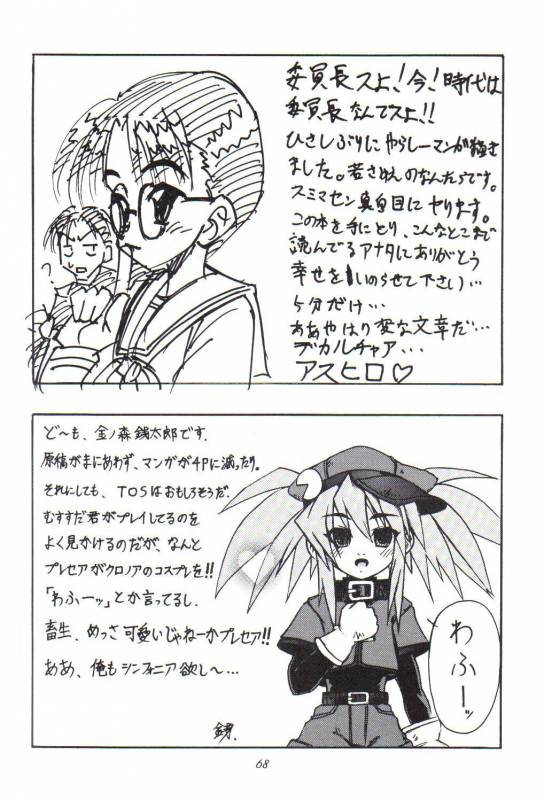 委員長スよ!今!時代は
委員長なんでスよ!!
ひさしぶりにやらしーマンが描き
ました。若さゆえのなんたらです。
スミマセン真面目にヤります。
この本を手にとり、こんなとこまで
読んでるアナタにありがとう
幸せをいのらせて下さい…
5分だけ…
ああやはり変な文章だ…
デカルチャア…
アスヒロ♡
?
ど〜も、金ノ森銭太郎です.
原稿がまにあわず、マンガが4Pに減ったり。
それにしても、TOSはおもしろそうだ.
むすすだ君がプレイしてるのを
よく見かけるのだが、なんと
プレセアがクロノアのコスプレを!!
「わふーッ」とか言ってるし.
畜生、めっさ可愛いじゃねーかプレセア!!
ああ、俺もシンフォニア欲し〜…
わふーッ
68